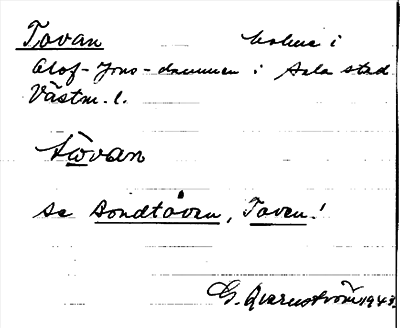 Tovan holme i
Olof-Jons-dammen i Sala stad
Västm. l.
tωvan
se Sondtåven, Taven!
G. Qvarnström 1943.